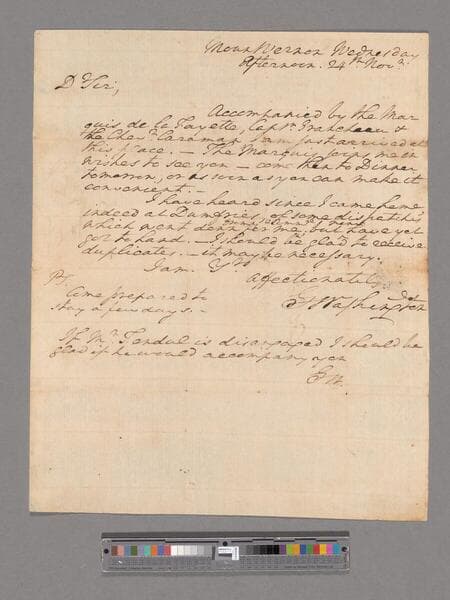 Mount Vernon Wednesday
Afternoon. 24th Novr.
Dr Sir,
Accompanied by the Mar-
quis de la Fayette, Captn. Grandcheau &
the Chevr. Caraman I am just arrived at
this place. — The Marquis joins me in
wishes to see you — come then to Dinner
tomorrow, or as soon as you can make it
convenient. —
I have heard since I came home
indeed at Dumfries, of some dispatches
which went down for me, but have yet
got to hand. — I should be glad to receive
duplicates. — it may be necessary.
I am. Yrs
affectionately
Go: Washington
PS.
Come prepared to
stay a few days. —
If Mr. Tendul is disengaged I should be
glad if he would accompany you
G W.